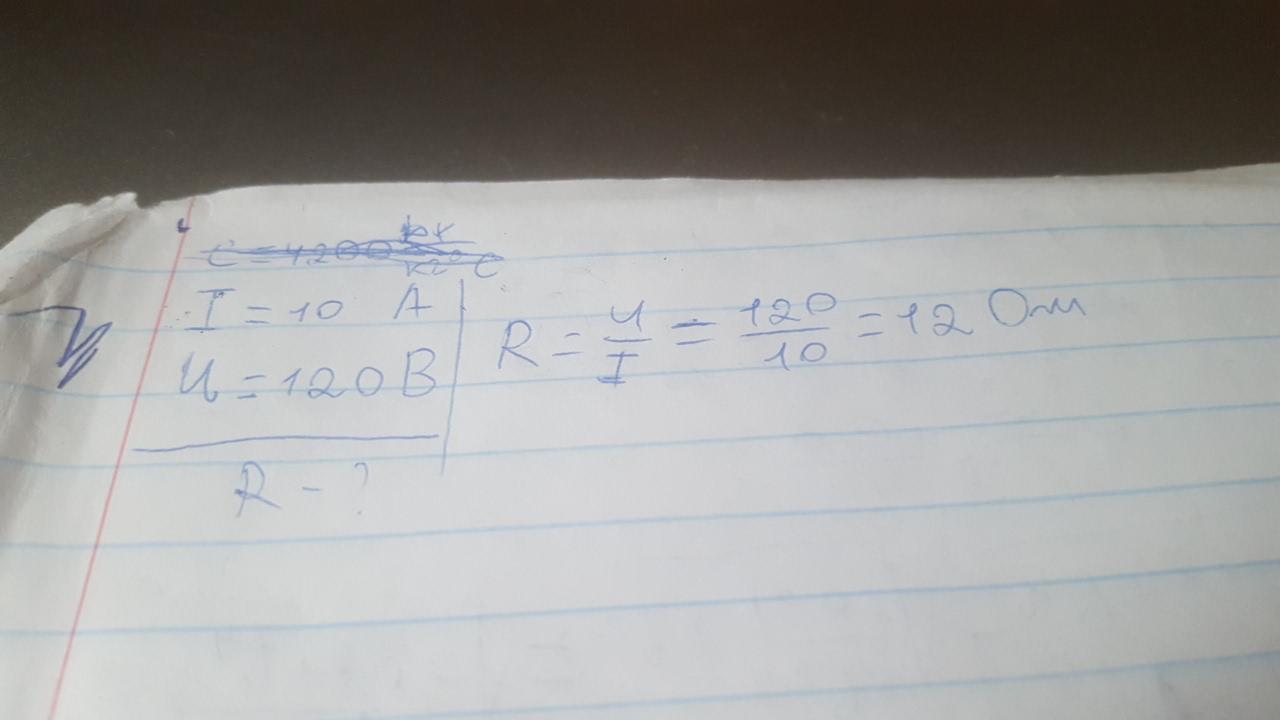 c = 4200 Дж/кг°C
I = 10 A
U = 120 В
R - ?
R = U/I = 120/10 = 12 Ом